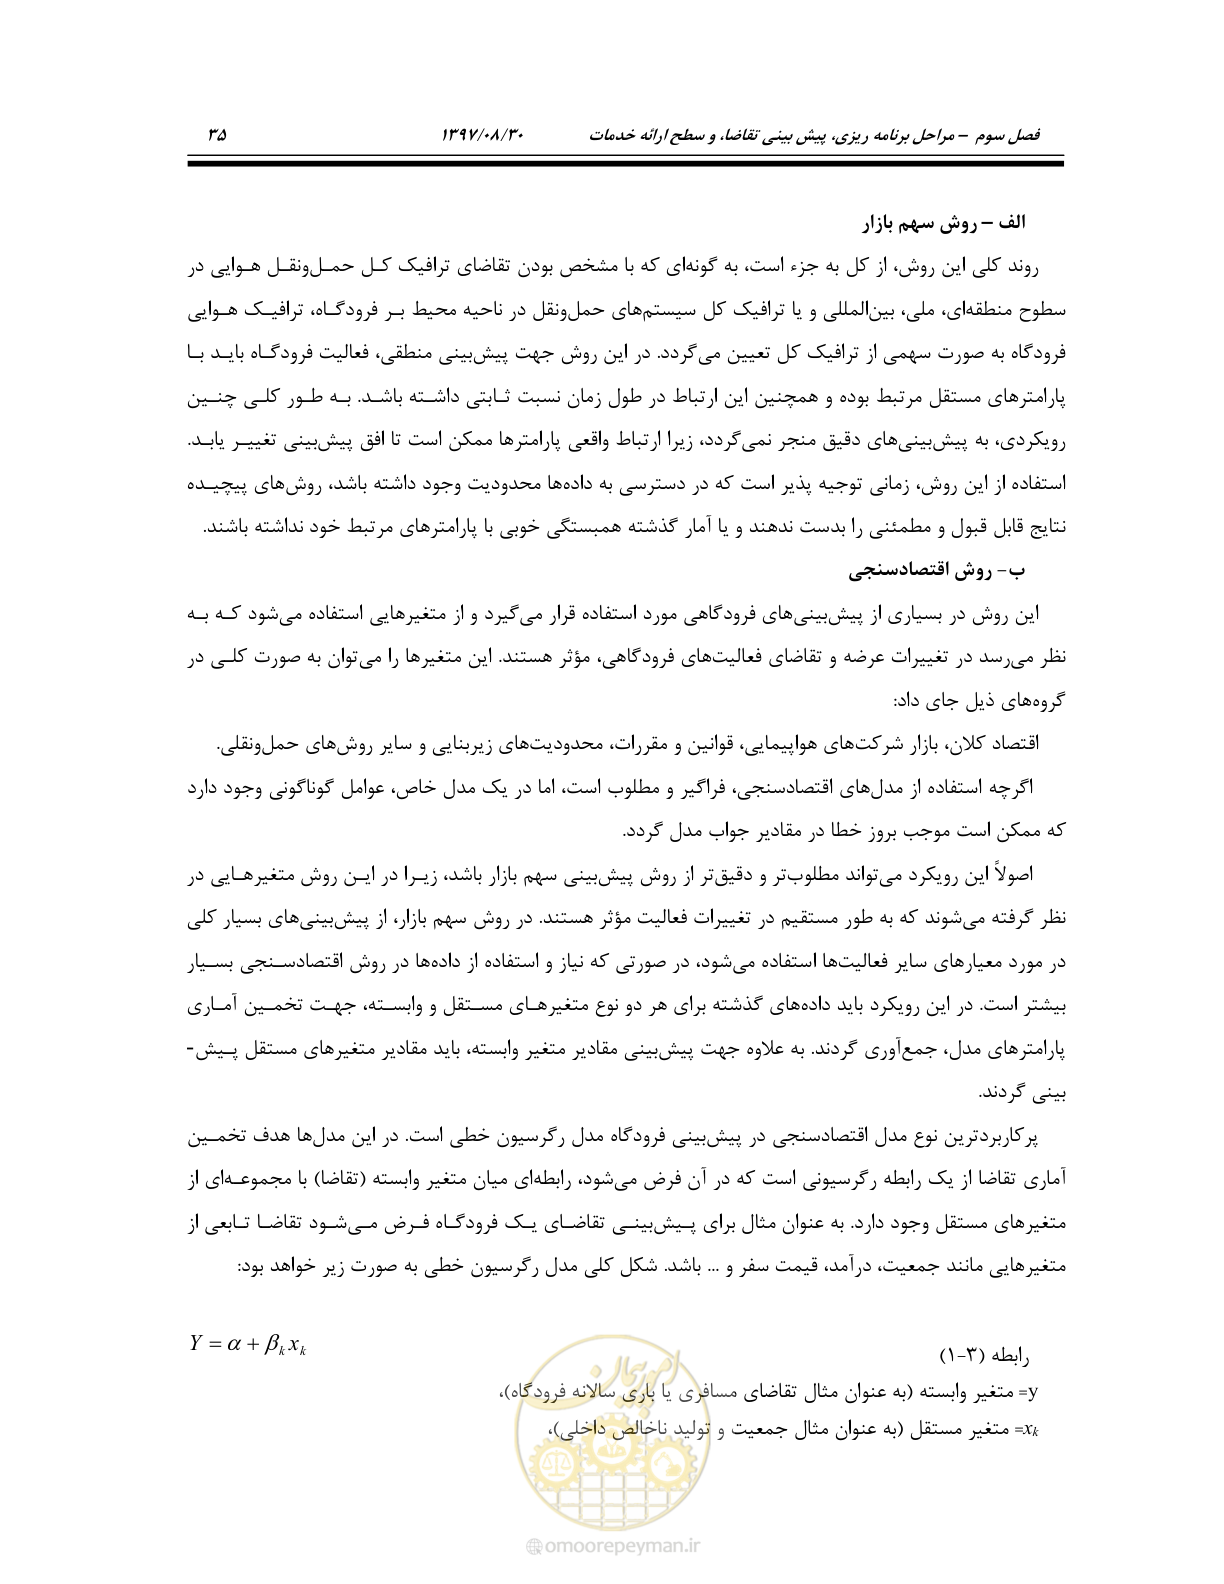 فصل سوم – مراحل برنامه ریزی، پیش بینی تقاضا، و سطح ارائه خدمات ۱۳۹۷/۰۸/۳۰ ۳۵
الف – روش سهم بازار
روند کلی این روش، از کل به جزء است، به گونه‌ای که با مشخص بودن تقاضای ترافیک کـل حمـل‌ونقـل هـوایی در
سطوح منطقه‌ای، ملی، بین‌المللی و یا ترافیک کل سیستم‌های حمل‌ونقل در ناحیه محیط بـر فرودگـاه، ترافیـک هـوایی
فرودگاه به صورت سهمی از ترافیک کل تعیین می‌گردد. در این روش جهت پیش‌بینی منطقی، فعالیت فرودگـاه بایـد بـا
پارامترهای مستقل مرتبط بوده و همچنین این ارتباط در طول زمان نسبت ثـابتی داشـته باشـد. بـه طـور کلـی چنـین
رویکردی، به پیش‌بینی‌های دقیق منجر نمی‌گردد، زیرا ارتباط واقعی پارامترها ممکن است تا افق پیش‌بینی تغییـر یابـد.
استفاده از این روش، زمانی توجیه پذیر است که در دسترسی به داده‌ها محدودیت وجود داشته باشد، روش‌های پیچیـده
نتایج قابل قبول و مطمئنی را بدست ندهند و یا آمار گذشته همبستگی خوبی با پارامترهای مرتبط خود نداشته باشند.
ب- روش اقتصادسنجی
این روش در بسیاری از پیش‌بینی‌های فرودگاهی مورد استفاده قرار می‌گیرد و از متغیرهایی استفاده می‌شود کـه بـه
نظر می‌رسد در تغییرات عرضه و تقاضای فعالیت‌های فرودگاهی، مؤثر هستند. این متغیرها را می‌توان به صورت کلـی در
گروه‌های ذیل جای داد:
اقتصاد کلان، بازار شرکت‌های هواپیمایی، قوانین و مقررات، محدودیت‌های زیربنایی و سایر روش‌های حمل‌ونقلی.
اگرچه استفاده از مدل‌های اقتصادسنجی، فراگیر و مطلوب است، اما در یک مدل خاص، عوامل گوناگونی وجود دارد
که ممکن است موجب بروز خطا در مقادیر جواب مدل گردد.
اصولاً این رویکرد می‌تواند مطلوب‌تر و دقیق‌تر از روش پیش‌بینی سهم بازار باشد، زیـرا در ایـن روش متغیرهـایی در
نظر گرفته می‌شوند که به طور مستقیم در تغییرات فعالیت مؤثر هستند. در روش سهم بازار، از پیش‌بینی‌های بسیار کلی
در مورد معیارهای سایر فعالیت‌ها استفاده می‌شود، در صورتی که نیاز و استفاده از داده‌ها در روش اقتصادسـنجی بسـیار
بیشتر است. در این رویکرد باید داده‌های گذشته برای هر دو نوع متغیرهـای مسـتقل و وابسـته، جهـت تخمـین آمـاری
پارامترهای مدل، جمع‌آوری گردند. به علاوه جهت پیش‌بینی مقادیر متغیر وابسته، باید مقادیر متغیرهای مستقل پـیش-
بینی گردند.
پرکاربردترین نوع مدل اقتصادسنجی در پیش‌بینی فرودگاه مدل رگرسیون خطی است. در این مدل‌ها هدف تخمـین
آماری تقاضا از یک رابطه رگرسیونی است که در آن فرض می‌شود، رابطه‌ای میان متغیر وابسته (تقاضا) با مجموعـه‌ای از
متغیرهای مستقل وجود دارد. به عنوان مثال برای پـیش‌بینـی تقاضـای یـک فرودگـاه فـرض مـی‌شـود تقاضـا تـابعی از
متغیرهایی مانند جمعیت، درآمد، قیمت سفر و ... باشد. شکل کلی مدل رگرسیون خطی به صورت زیر خواهد بود:
رابطه (۳-۱) Y = α + βₖxₖ
y= متغیر وابسته (به عنوان مثال تقاضای مسافری یا باری سالانه فرودگاه)،
xₖ= متغیر مستقل (به عنوان مثال جمعیت و تولید ناخالص داخلی)،
امور پیمان
@omoorepeyman.ir